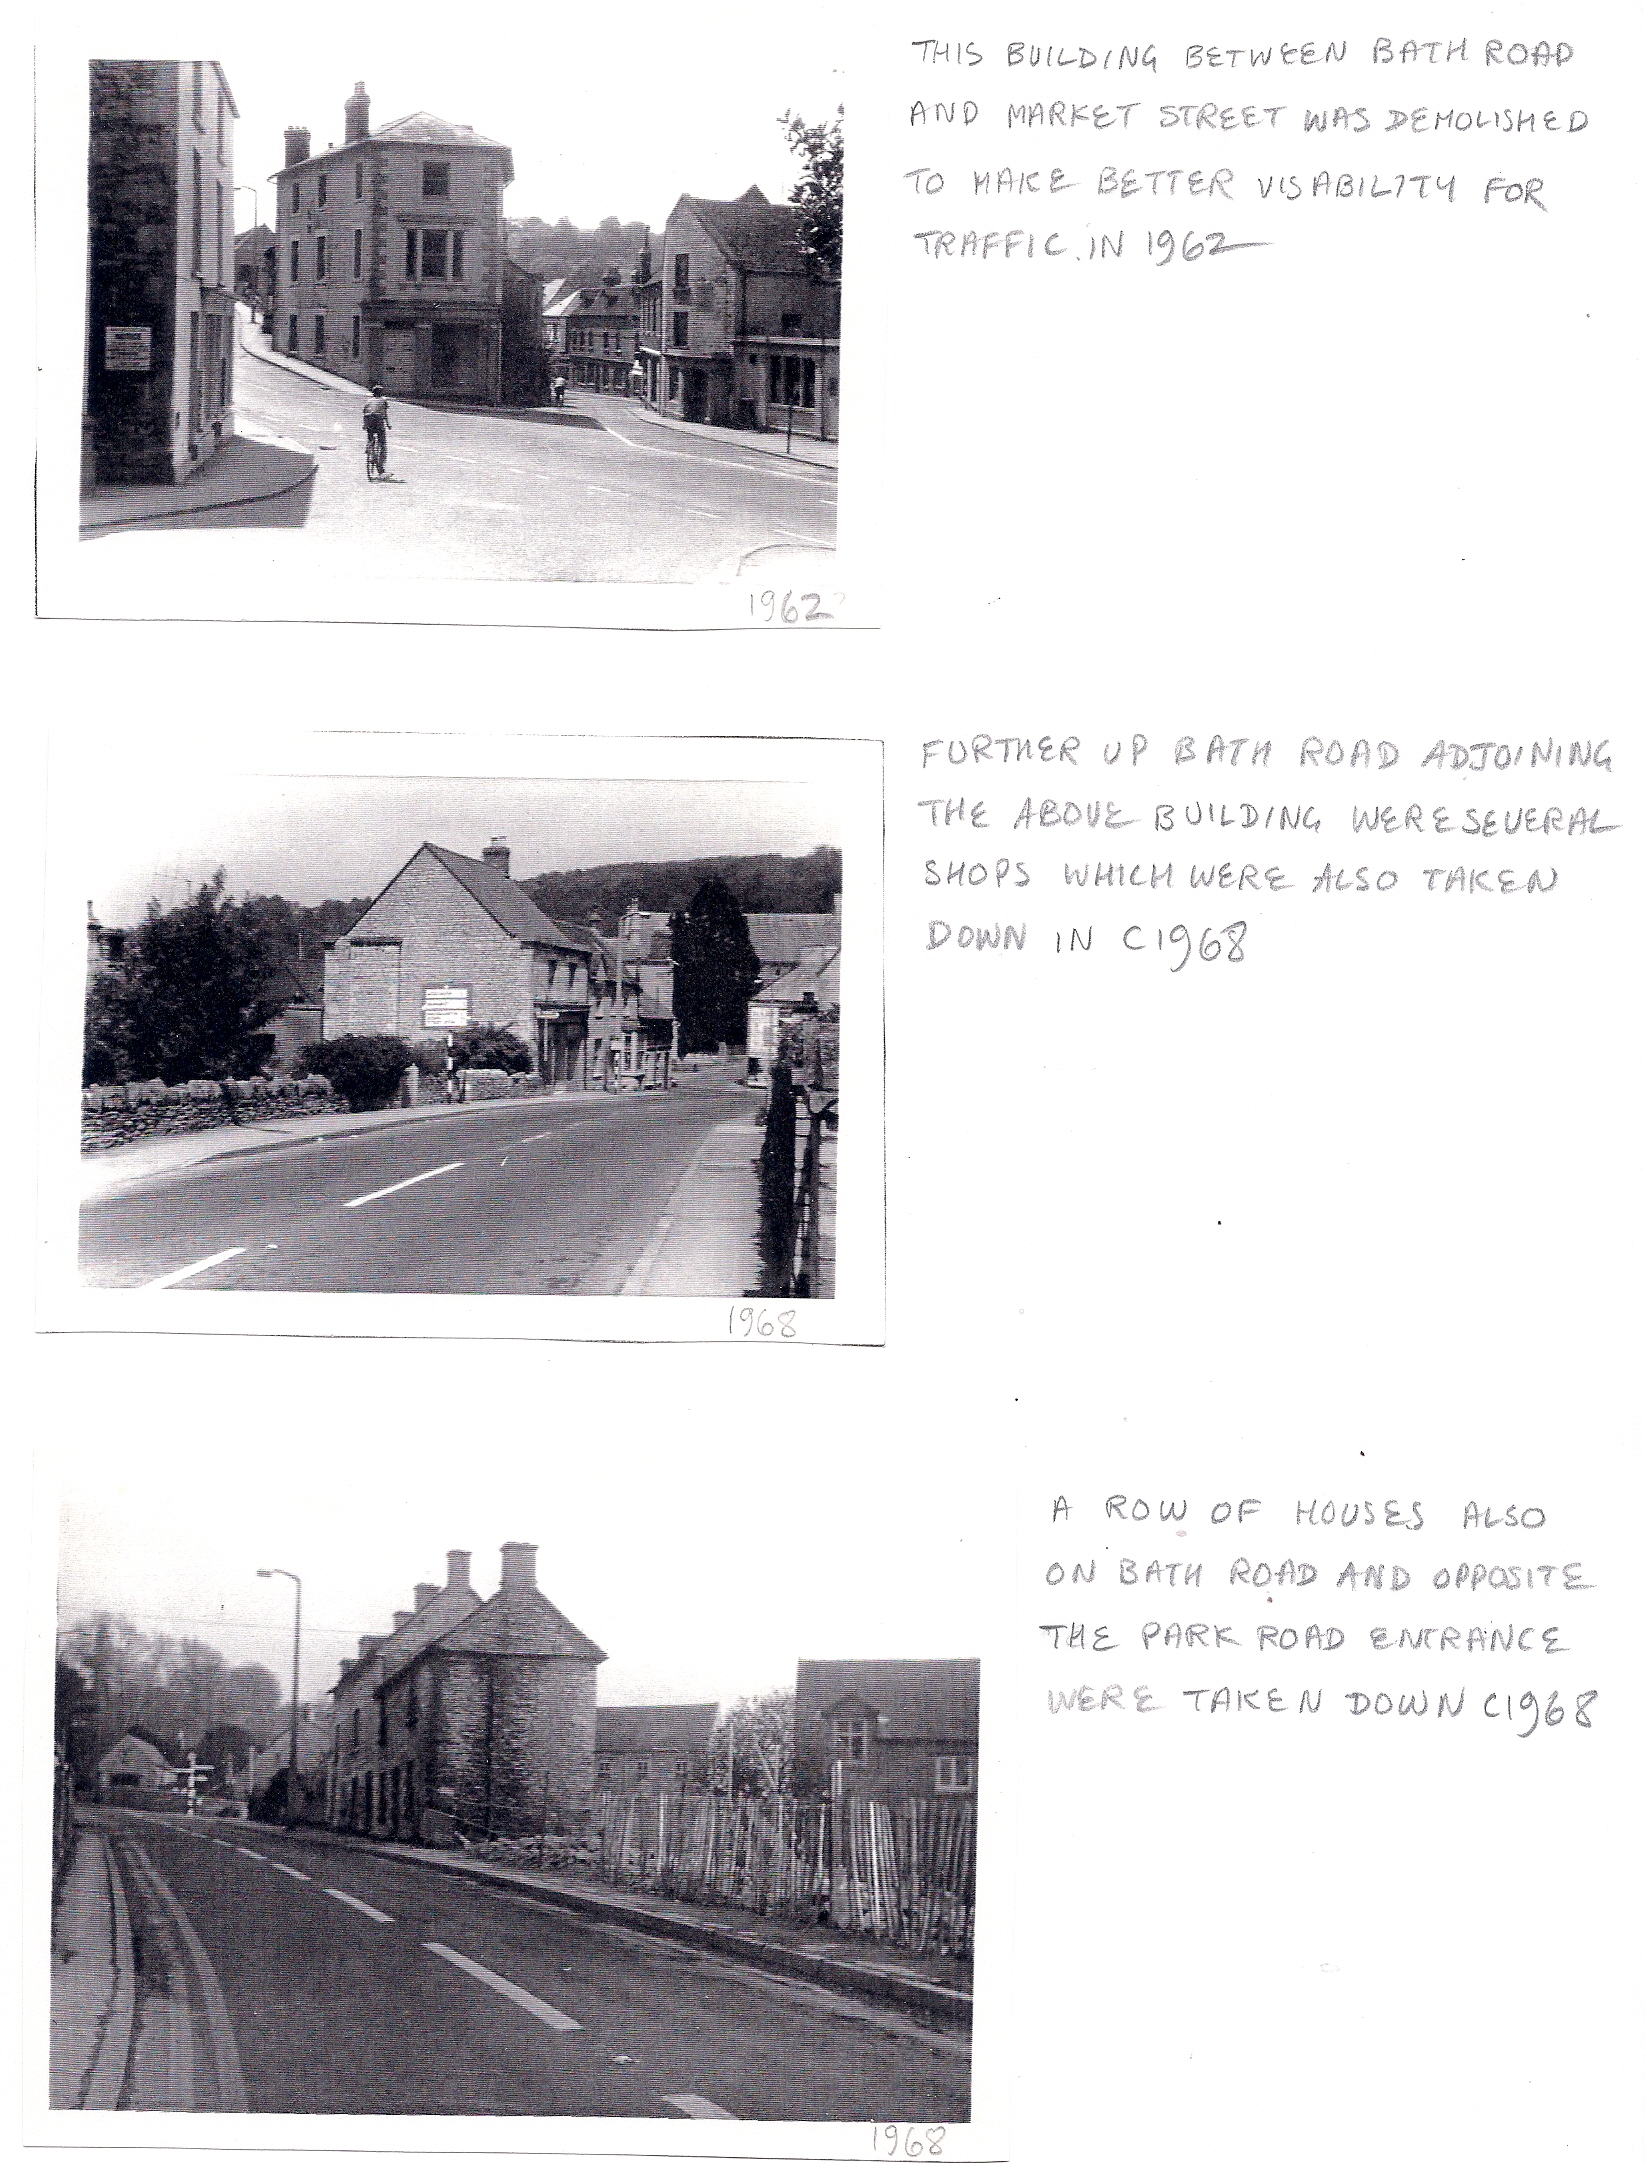 THIS BUILDING BETWEEN BATH ROAD
AND MARKET STREET WAS DEMOLISHED
TO MAKE BETTER VISABILITY FOR
TRAFFIC. IN 1962
1962
FURTHER UP BATH ROAD ADJOINING
THE ABOVE BUILDING WERE SEVERAL
SHOPS WHICH WERE ALSO TAKEN
DOWN IN C1968
1968
A ROW OF HOUSES ALSO
ON BATH ROAD AND OPPOSITE
THE PARK ROAD ENTRANCE
WERE TAKEN DOWN C1968
1968